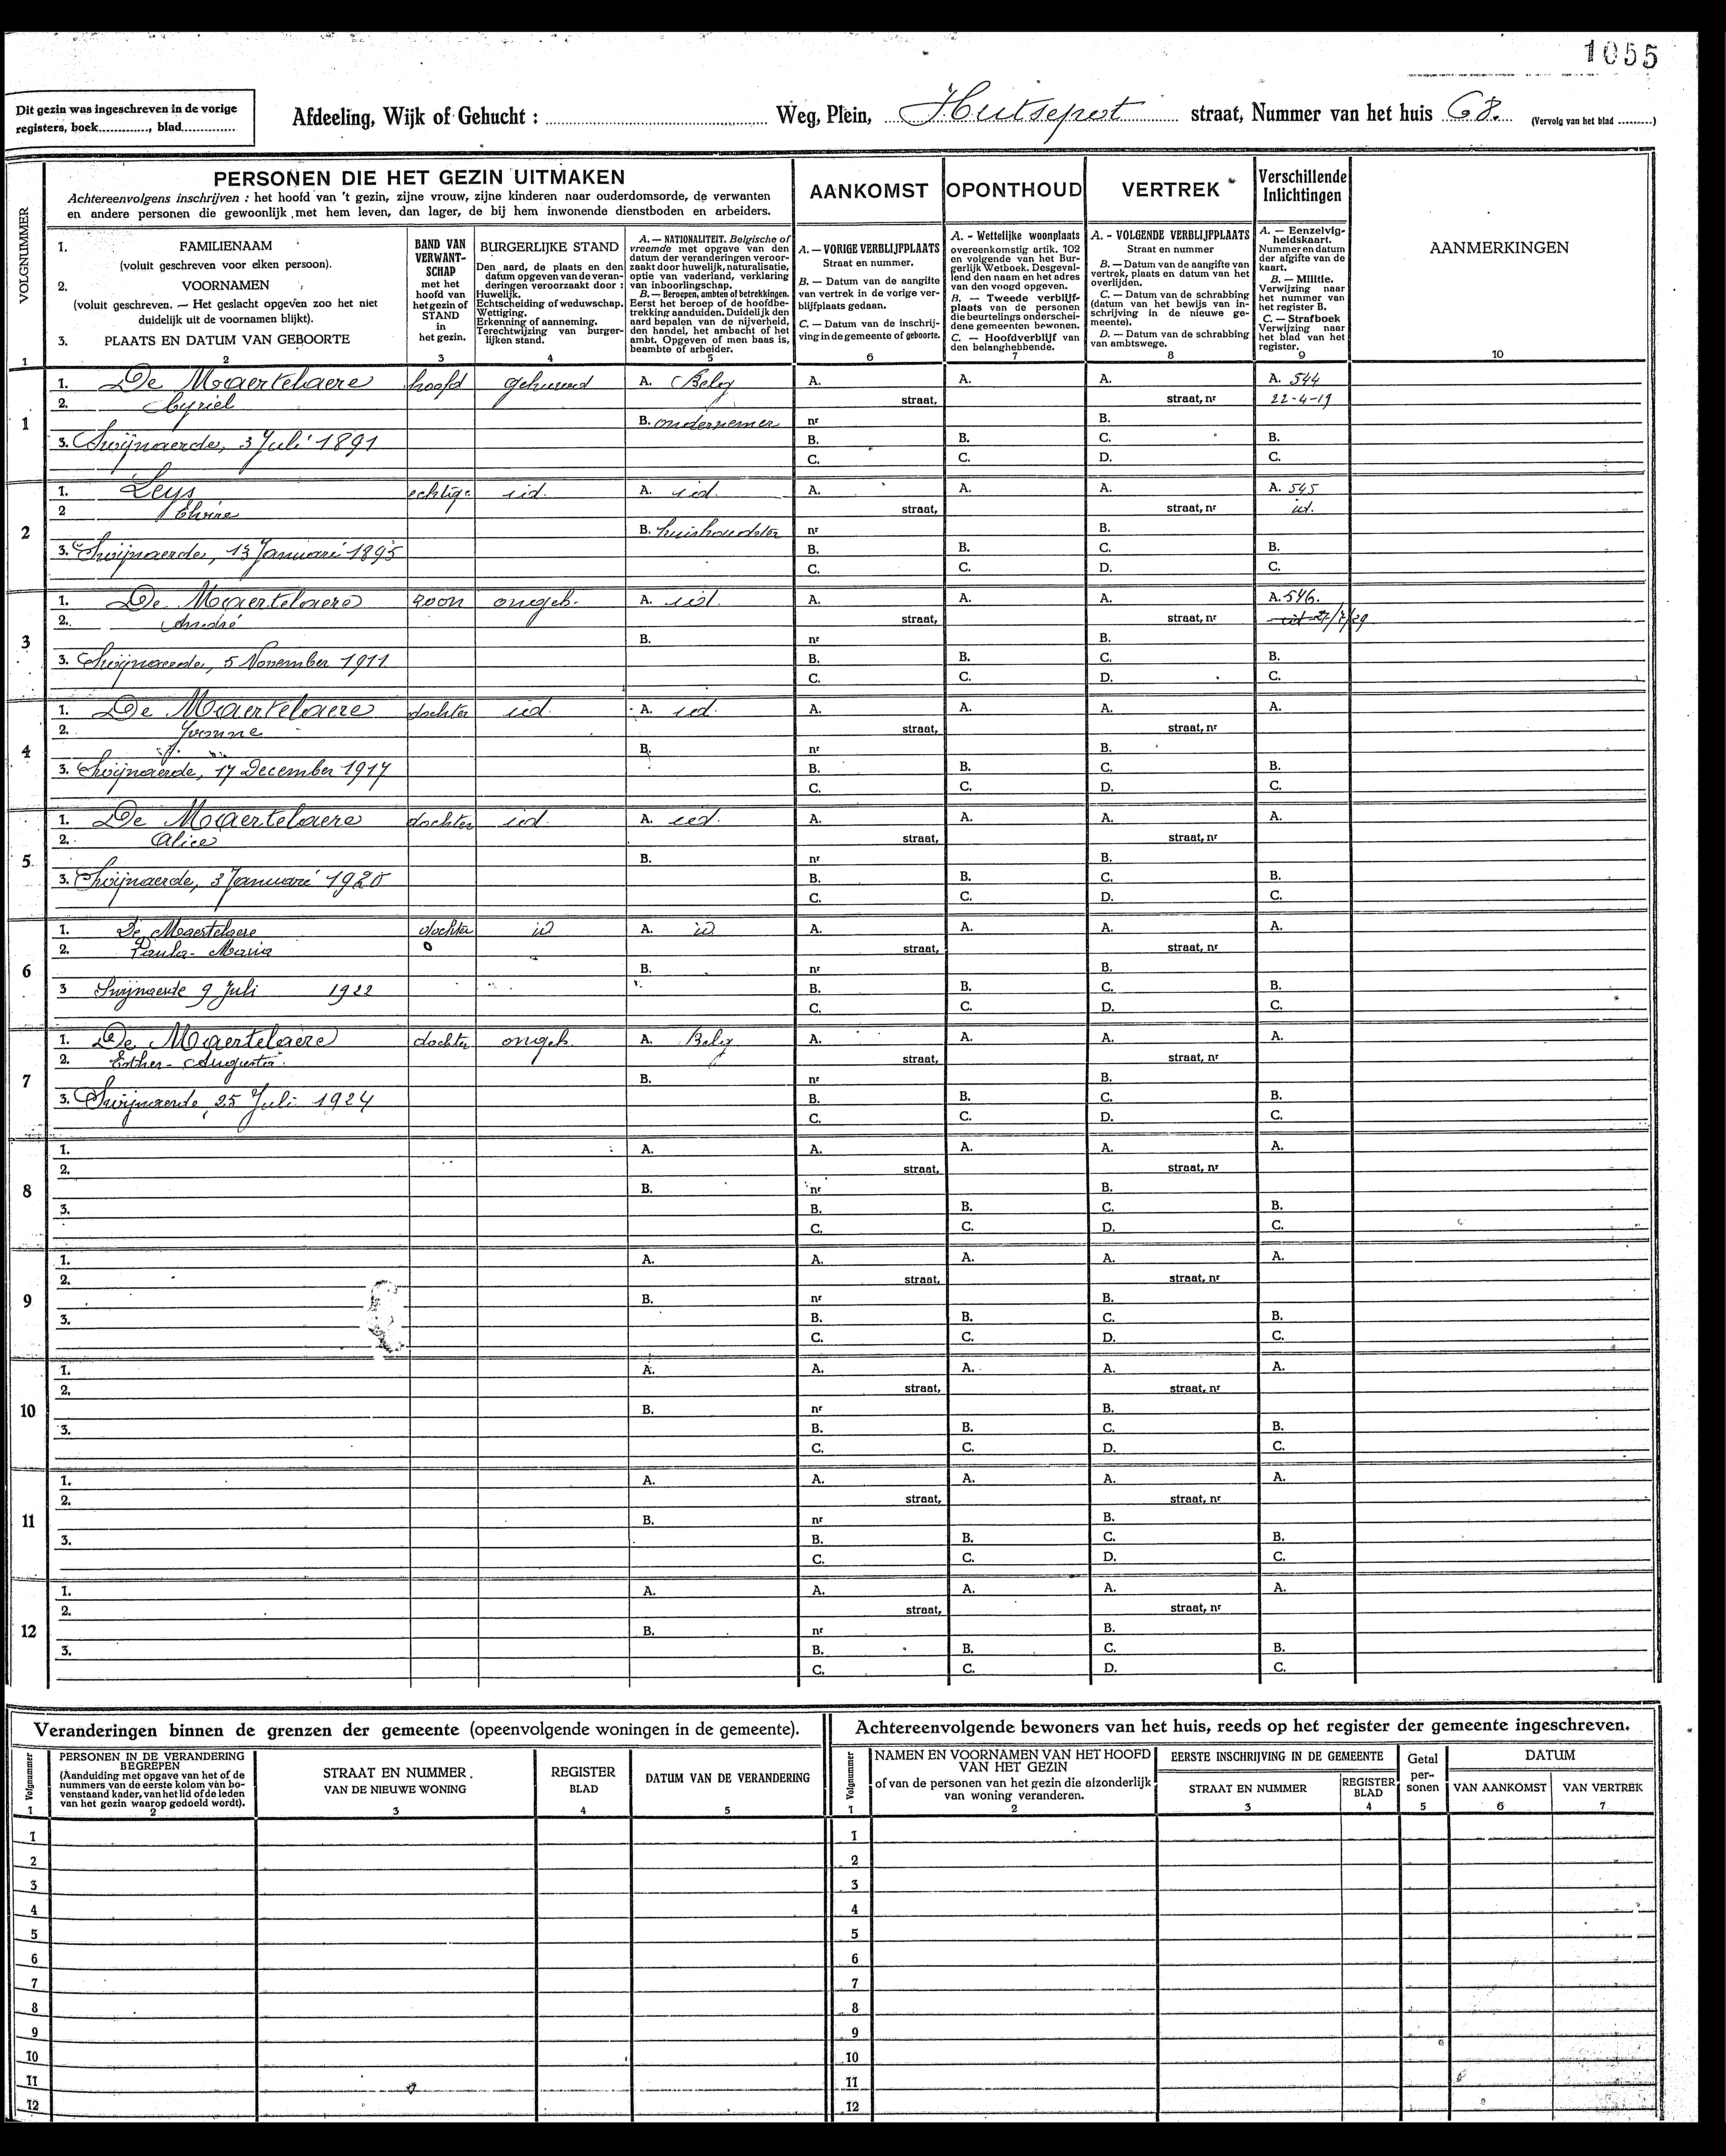 1055
Dit gezin was ingeschreven in de vorige
registers, boek............., blad..............
Afdeeling, Wijk of Gehucht : ........................ Weg, Plein, Hutsepot straat, Nummer van het huis 68. (Vervolg van het blad .........)
VOLGNUMMER
PERSONEN DIE HET GEZIN UITMAKEN
Achtereenvolgens inschrijven : het hoofd van 't gezin, zijne vrouw, zijne kinderen naar ouderdomsorde, de verwanten
en andere personen die gewoonlijk met hem leven, dan lager, de bij hem inwonende dienstboden en arbeiders.
AANKOMST
OPONTHOUD
VERTREK
Verschillende
Inlichtingen
AANMERKINGEN
1. FAMILIENAAM
(voluit geschreven voor elken persoon).
2. VOORNAMEN
(voluit geschreven. — Het geslacht opgeven zoo het niet
duidelijk uit de voornamen blijkt).
3. PLAATS EN DATUM VAN GEBOORTE
BAND VAN
VERWANT-
SCHAP
met het
hoofd van
het gezin of
STAND
in
het gezin.
BURGERLIJKE STAND
Den aard, de plaats en den
datum opgeven van de veran-
deringen veroorzaakt door :
Huwelijk.
Echtscheiding of weduwschap.
Wettiging.
Erkenning of aanneming.
Terechtwijzing van burger-
lijken stand.
A. — NATIONALITEIT. Belgische of
vreemde met opgave van den
datum der veranderingen veroor-
zaakt door huwelijk, naturalisatie,
optie van vaderland, verklaring
van inboorlingschap.
B. — Beroepen, ambten of betrekkingen.
Eerst het beroep of de hoofdbe-
trekking aanduiden. Duidelijk den
aard bepalen van de nijverheid,
den handel, het ambacht of het
ambt. Opgeven of men baas is,
beambte of arbeider.
A. — VORIGE VERBLIJFPLAATS
Straat en nummer.
B. — Datum van de aangifte
van vertrek in de vorige ver-
blijfplaats gedaan.
C. — Datum van de inschrij-
ving in de gemeente of geboorte.
A. - Wettelijke woonplaats
overeenkomstig artik. 102
en volgende van het Bur-
gerlijk Wetboek. Desgeval-
lend den naam en het adres
van den voogd opgeven.
B. — Tweede verblijf-
plaats van de personen
die beurtelings onderschei-
dene gemeenten bewonen.
C. — Hoofdverblijf van
den belanghebbende.
A. - VOLGENDE VERBLIJFPLAATS
Straat en nummer
B. — Datum van de aangifte van
vertrek, plaats en datum van het
overlijden.
C. — Datum van de schrabbing
(datum van het bewijs van in-
schrijving in de nieuwe ge-
meente).
D. — Datum van de schrabbing
van ambtswege.
A. — Eenzelvig-
heidskaart.
Nummer en datum
der afgifte van de
kaart.
B. — Militie.
Verwijzing naar
het nummer van
het register B.
C. — Strafboek
Verwijzing naar
het blad van het
register.
1 2 3 4 5 6 7 8 9 10
1. De Maertelaere hoofd gehuwd A. Belg A. A. A. A. 544
2. Cyriel straat, straat, nr 22-4-19
1 B. ondernemer nr B.
3. Swijnaerde, 3 Juli 1891 B. B. C. B.
C. C. D. C.
1. Leys echtge. id. A. id. A. A. A. A. 545
2 straat, straat, nr id.
2 B. huishoudster nr B.
3. Swijnaerde, 13 Januari 1895 B. B. C. B.
C. C. D. C.
1. De Maertelaere zoon ongeh. A. id. A. A. A. A. 546.
2. André straat, straat, nr
3 B. nr B.
3. Swijnaerde, 5 November 1911 B. B. C. B.
C. C. D. C.
1. De Maertelaere dochter id. A. id. A. A. A. A.
2. Yvonne straat, straat, nr
4 B. nr B.
3. Swijnaerde, 17 December 1917 B. B. C. B.
C. C. D. C.
1. De Maertelaere dochter id. A. id. A. A. A. A.
2. Alice straat, straat, nr
5 B. nr B.
3. Swijnaerde, 3 Januari 1920 B. B. C. B.
C. C. D. C.
1. De Maertelaere dochter id A. id A. A. A. A.
2. Paula-Maria straat, straat, nr
6 B. nr B.
3 Swijnaerde 9 Juli 1922 B. B. C. B.
C. C. D. C.
1. De Maertelaere dochter ongeh. A. Belg A. A. A. A.
2. Esther-Augusta straat, straat, nr
7 B. nr B.
3. Swijnaerde, 25 Juli 1924 B. B. C. B.
C. C. D. C.
1. A. A. A. A. A.
2. straat, straat, nr
8 B. nr B.
3. B. B. C. B.
C. C. D. C.
1. A. A. A. A. A.
2. straat, straat, nr
9 B. nr B.
3. B. B. C. B.
C. C. D. C.
1. A. A. A. A. A.
2. straat, straat, nr
10 B. nr B.
3. B. B. C. B.
C. C. D. C.
1. A. A. A. A. A.
2. straat, straat, nr
11 B. nr B.
3. B. B. C. B.
C. C. D. C.
1. A. A. A. A. A.
2. straat, straat, nr
12 B. nr B.
3. B. B. C. B.
C. C. D. C.
Veranderingen binnen de grenzen der gemeente (opeenvolgende woningen in de gemeente).
Volgnummer
PERSONEN IN DE VERANDERING
BEGREPEN
(Aanduiding met opgave van het of de
nummers van de eerste kolom van bo-
venstaand kader, van het lid of de leden
van het gezin waarop gedoeld wordt).
STRAAT EN NUMMER
VAN DE NIEUWE WONING
REGISTER
BLAD
DATUM VAN DE VERANDERING
1 2 3 4 5
1
2
3
4
5
6
7
8
9
10
11
12
Achtereenvolgende bewoners van het huis, reeds op het register der gemeente ingeschreven.
Volgnummer
NAMEN EN VOORNAMEN VAN HET HOOFD
VAN HET GEZIN
of van de personen van het gezin die afzonderlijk
van woning veranderen.
EERSTE INSCHRIJVING IN DE GEMEENTE
STRAAT EN NUMMER
REGISTER
BLAD
Getal
per-
sonen
DATUM
VAN AANKOMST
VAN VERTREK
1 2 3 4 5 6 7
1
2
3
4
5
6
7
8
9
10
11
12